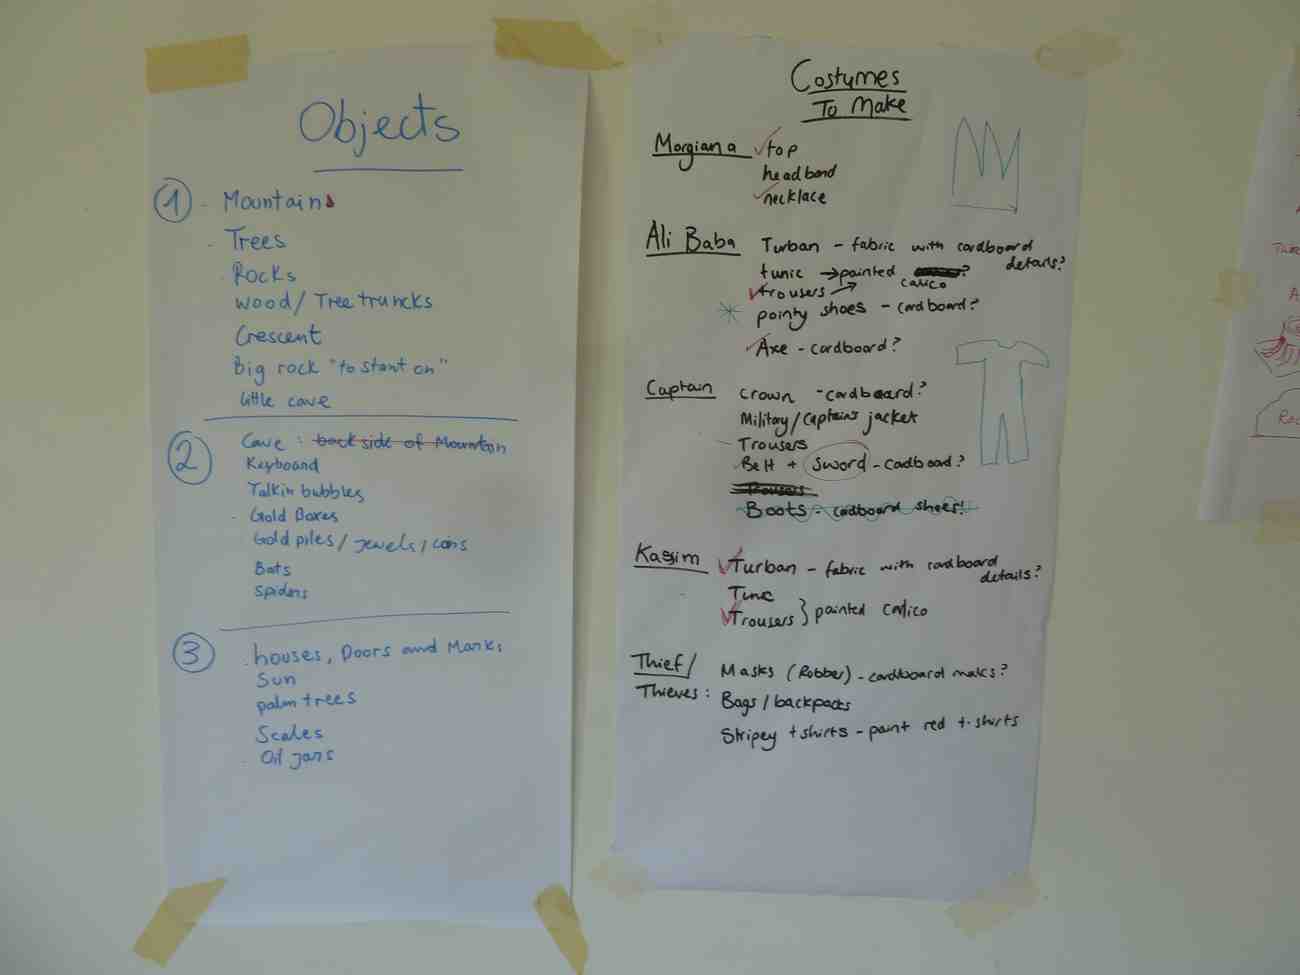 Objects
1 Mountains
Trees
Rocks
wood/ Tree truncks
Crescent
Big rock "to stant on"
little cave
2 Cave : back side of Mountain
Keyboard
Talkin bubbles
Gold Boxes
Gold piles / jewels / coins
Bats
Spiders
3 houses, Doors and Marks
Sun
palm trees
Scales
Oil jars
Costumes
To Make
Morgiana top
headband
necklace
Ali Baba Turban - fabric with cardboard
details?
tunic → painted ?
trousers → calico
pointy shoes - cardboard?
Axe - cardboard?
Captain crown - cardboard?
Military/Captains jacket
Trousers
Belt + Sword - cadboard?
Trousers
Boots - cardboard shoes!
Kassim Turban - fabric with cardboard
details?
Tunic
Trousers } painted calico
Thief/
Thieves: Masks (Robber) - cardboard maks?
Bags / backpacks
Stripey t shirts - paint red t-shirts